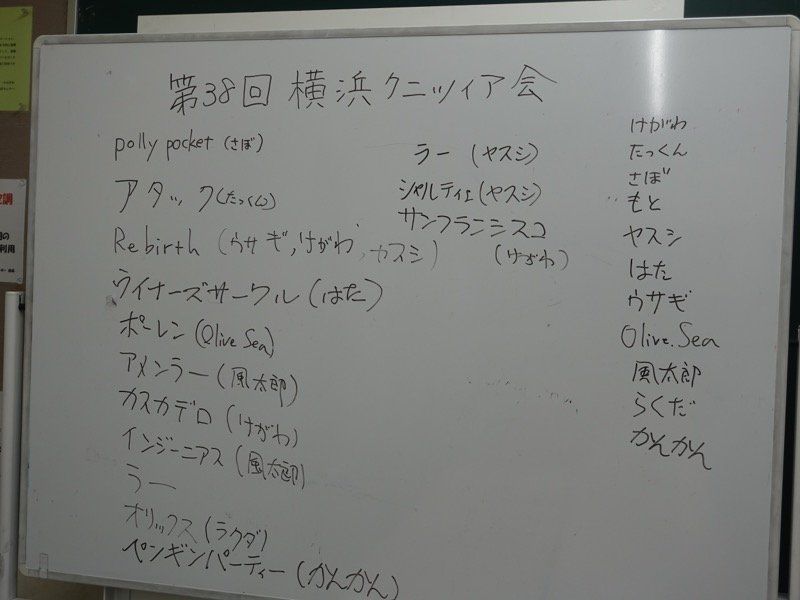 第38回 横浜クニツィア会
polly pocket (さぼ)
アタック(たっくん)
Rebirth (ウサギ,けがわ,ヤスシ)
ウイナーズサークル(はた)
ポーレン(Olive Sea)
アメンラー(風太郎)
カスカデロ(けがわ)
インジーニアス(風太郎)
ラー
オリックス(ラクダ)
ペンギンパーティー(かんかん)
ラー (ヤスシ)
シャルティエ(ヤスシ)
サンフランシスコ
(けがわ)
けがわ
たっくん
さぼ
もと
ヤスシ
はた
ウサギ
Olive.Sea
風太郎
らくだ
かんかん
講
の
利用